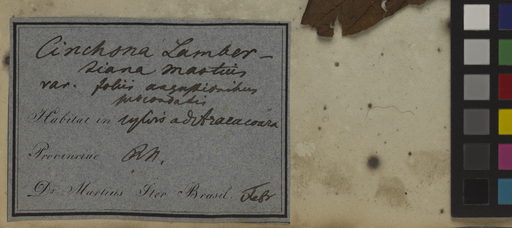 Cinchona Lamber-
tiana Martius
var. foliis angustioribus
subcordatis
Habitat in sylvis ad Araracoara
Provinciae R.N.
Dr. Martius Iter Brasil. Febr